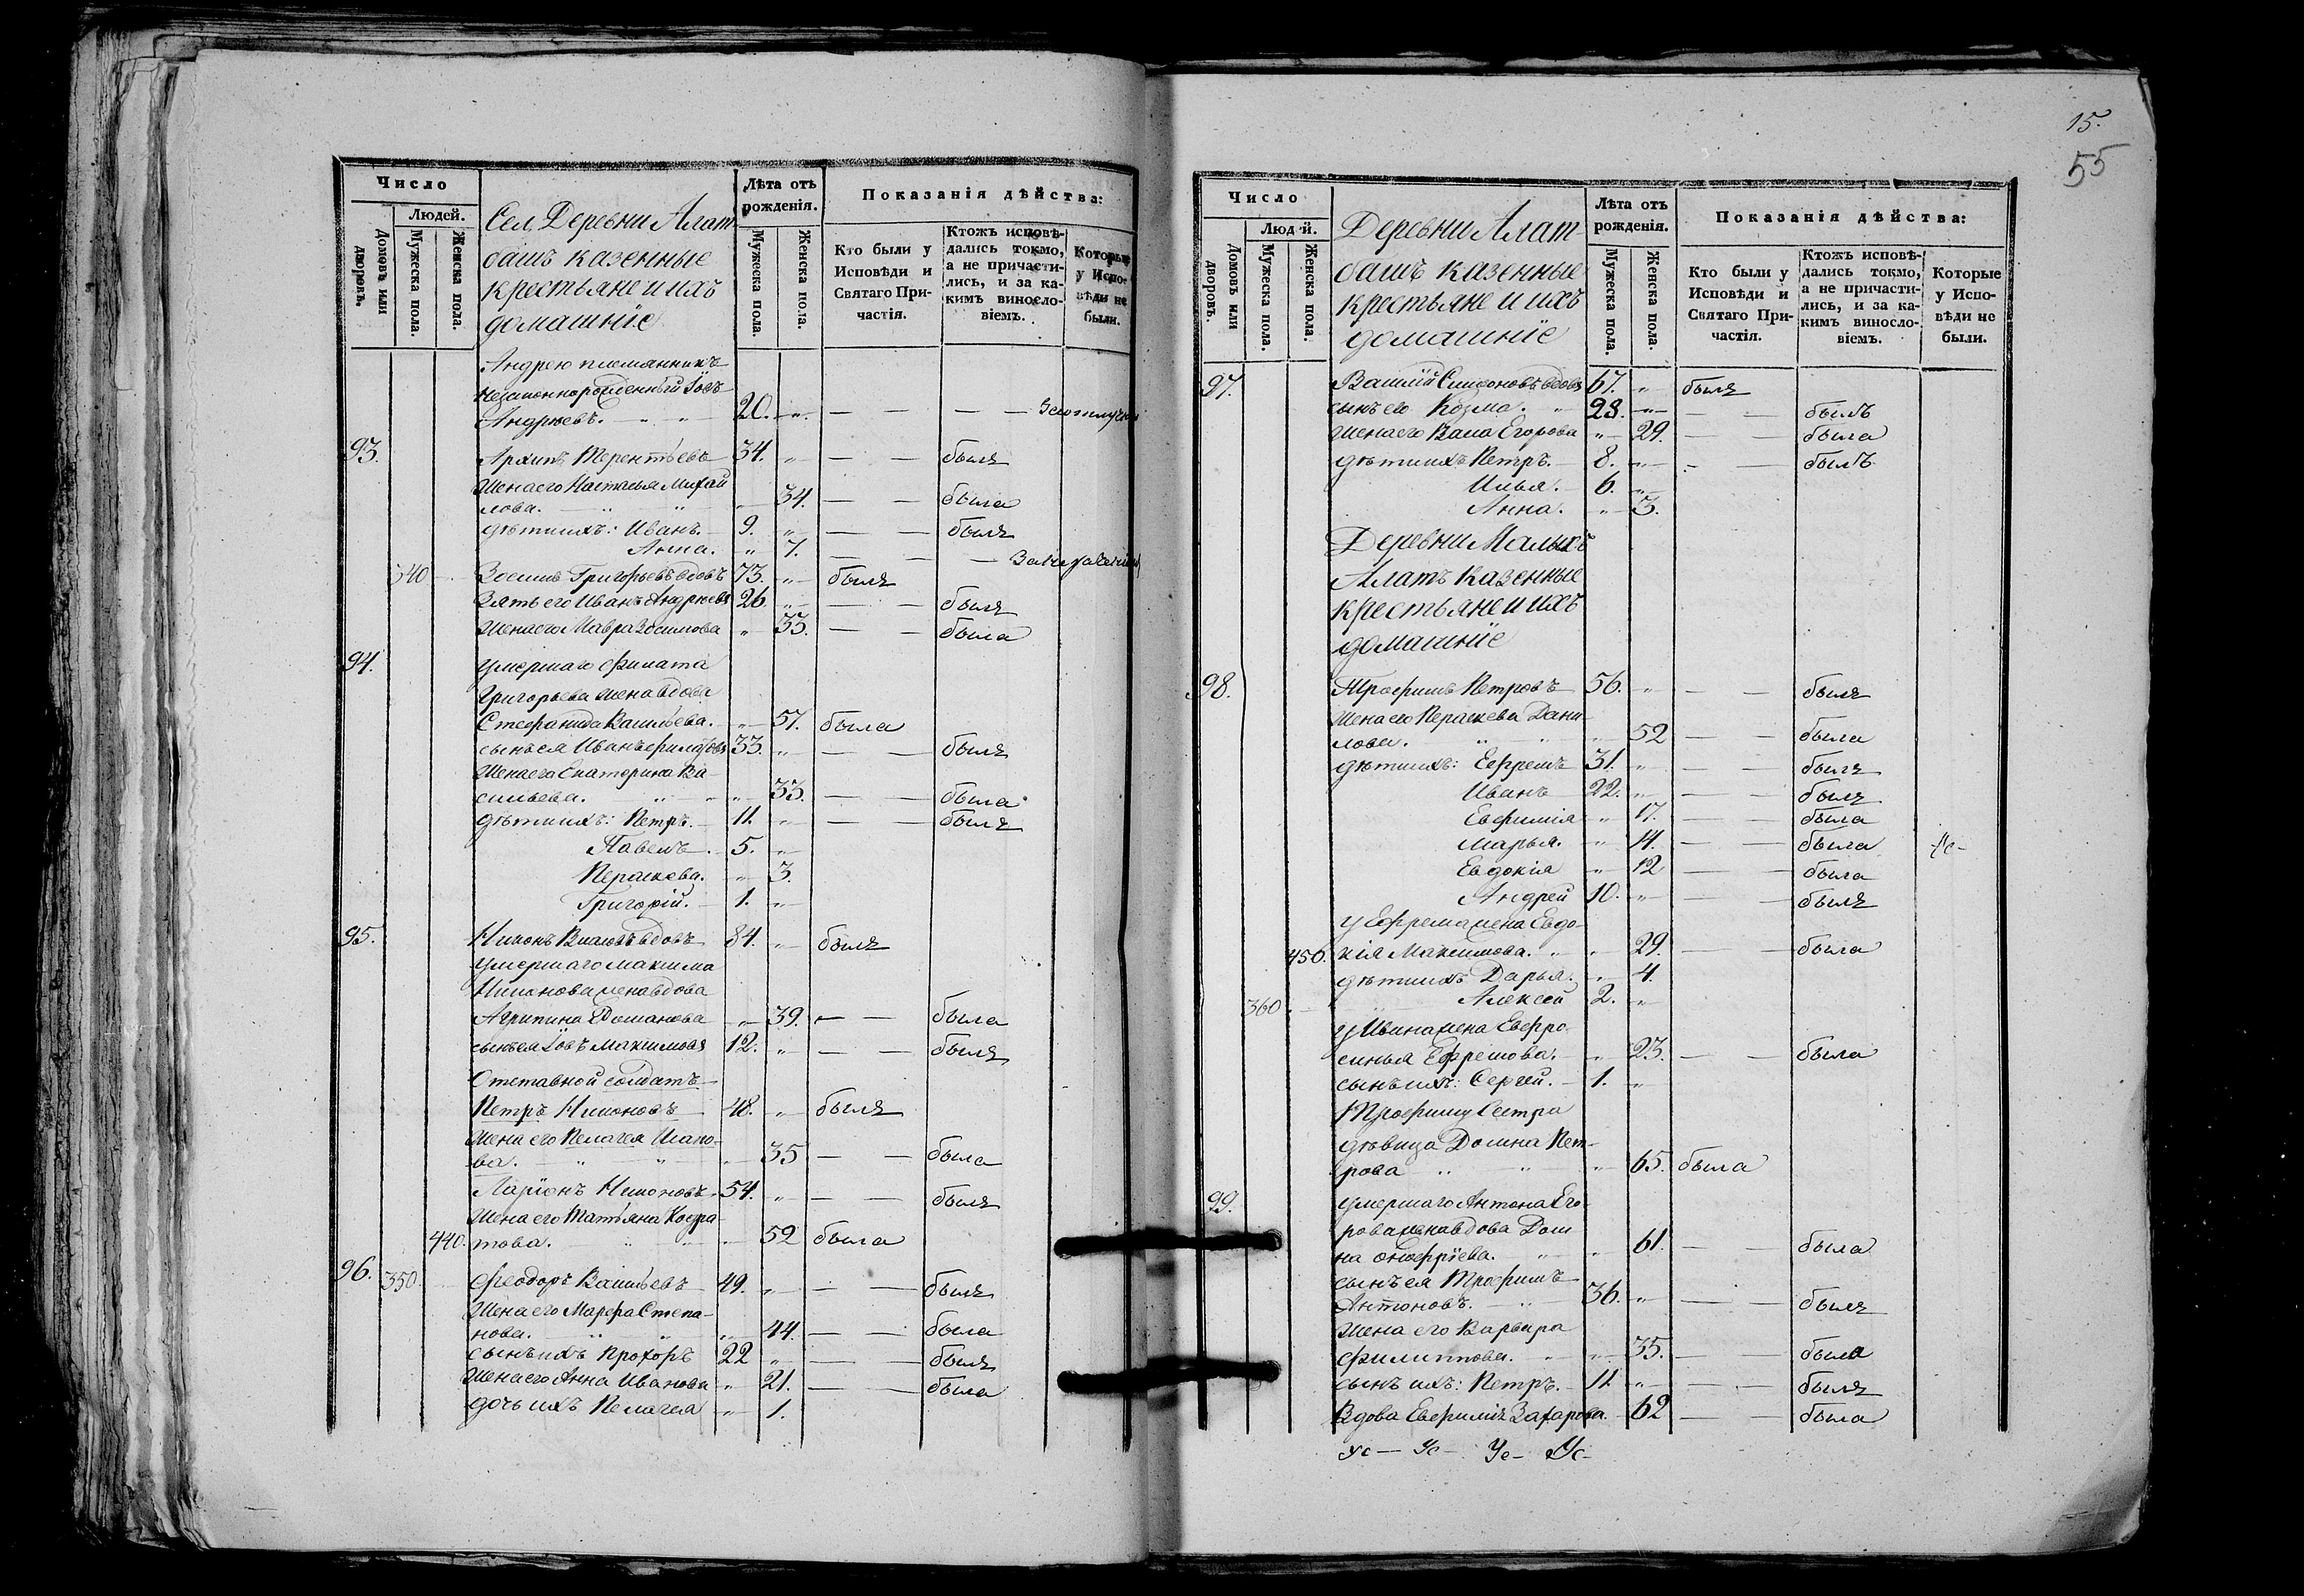 Число
Людей.
Домовъ или дворовъ.
Мужеска пола.
Женска пола.
Деревни Алат-
башъ казенные
крестьяне и ихъ
домашніе
Лѣта отъ рожденія.
Мужеска пола.
Женска пола.
Показанія дѣйства:
Кто были у Исповѣди и Святаго Причастія.
Ктожъ исповѣ-
дались токмо,
а не причасти-
лись, и за ка-
кимъ винословіемъ.
Которые у Исповѣди не были.
Андрею племянникъ
незаконнорожденный Іовъ
Андреевъ. 20. — — — — За отлуч
93. Архипъ Терентьевъ 34. — — былъ
Жена его Настасья Михай
лова. 34. — — была
дѣти ихъ: Иванъ. 9. — — былъ
Анна. 7. — — —
340 Зосимъ Григорьевъ вдовъ 73. былъ
Зять его Иванъ Андреевъ 26. — — былъ
Жена его Мавра Зосимова 33. — — была
94. умершаго Филата
Григорьева жена вдова
Стефанида Васильева. 57. была
сынъ ея Иванъ Филатовъ 33. — — былъ
Жена его Екатерина Ва-
сильева. 33. — — была
дѣти ихъ: Петръ. 11. — — былъ
Павелъ. 5.
Параскева. 3.
Григорій. 1.
95. вдовъ 84. былъ
умершаго Максима
жена вдова
39. — — была
сынъ ея Іовъ Максимовъ 12. — — былъ
Отставной солдатъ
Петръ 48. былъ
Жена его Пелагея
ва. 35 — — была
Ларіонъ 54. — — былъ
Жена его Татьяна Кодра-
440. това. 52 была
96. 350. Феодоръ Васильевъ 49. — — былъ
Жена его Марфа Степа-
нова. 44. — — была
сынъ ихъ Прохоръ 22 — — былъ
Жена его Анна Иванова 21. — — была
дочь ихъ Пелагея 1.
15.
55
Число
Людей.
Домовъ или дворовъ.
Мужеска пола.
Женска пола.
Деревни Алат-
башъ казенные
крестьяне и ихъ
домашніе
Лѣта отъ рожденія.
Мужеска пола.
Женска пола.
Показанія дѣйства:
Кто были у Исповѣди и Святаго Причастія.
Ктожъ исповѣ-
дались токмо,
а не причасти-
лись, и за ка-
кимъ винословіемъ.
Которые у Исповѣди не были.
97. Василій Симеоновъ вдовъ 67. былъ
сынъ его Козма. 28. — — былъ
Жена его Егорова 29. — — была
дѣти ихъ Петръ. 8. — — былъ
Илья. 6.
Анна. 3.
Деревни Малыхъ
Алатъ казенные
крестьяне и ихъ
домашніе
98. Трофимъ Петровъ 56. — — былъ
Жена его Параскева Дани-
лова. 52 — — была
дѣти ихъ: Ефремъ 31. — — былъ
Иванъ 22. — — былъ
Евфимія 17. — — была
Марья. 14. — — была
Евдокія 12 — — была
Андрей 10. — — былъ
у Ефрема жена Евдо-
450. кія Максимова. 29. — — была
дѣти ихъ Дарья. 4.
360 Алексей 2.
у Ивана жена Евфро-
синья Ефремова. 23. — — была
сынъ ихъ: Сергей. 1.
Трофиму сестра
дѣвица Домна Пет-
рова 65. была
99. умершаго Антона Его-
рова жена вдова Дом
на Онуфріева. 61. — — была
сынъ ея Трофимъ
Антоновъ. 36. — — былъ
Жена его Варвара
Филиппова. 35. — — была
сынъ ихъ: Петръ. 11. — — былъ
Вдова Евфимія Захарова. 62 — — была